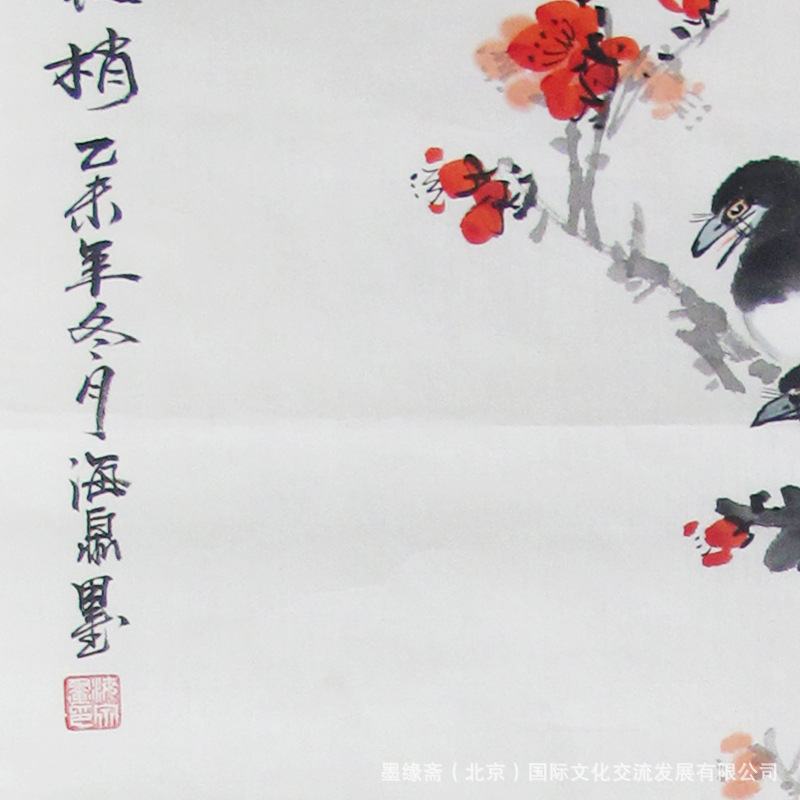 梢
乙未年冬月海鼎墨
墨缘斋（北京）国际文化交流发展有限公司